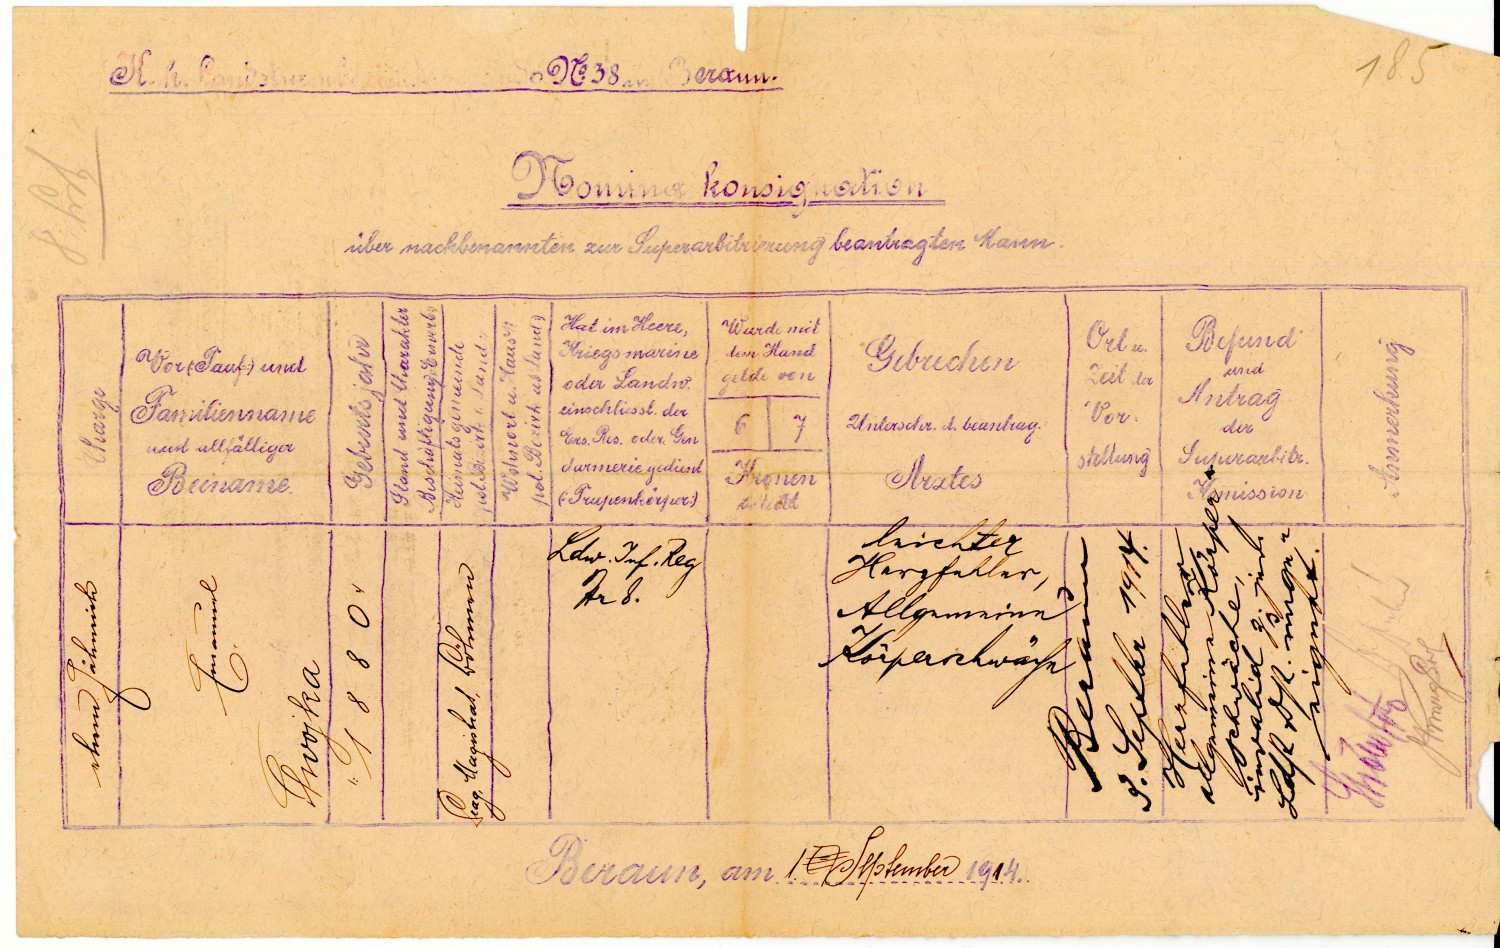 K. k. Landsturmbezirkskommando № 38 in Beraun.
185
Nominalkonsignation
über nachbenannten zur Superarbitrierung beantragten Mann.
Charge
Vor (Tauf:) und
Familienname
und allfälliger
Beiname.
Geburtsjahr
Stand und Charakter
Beschäftigung, Erwerb
Heimatsgemeinde
pol. Bezirk, Land
Wohnort u. Haus
pol. Bezirk u. Land
Hat im Heere,
Kriegsmarine
oder Landw.
einschliesst. der
Ers. Res. oder Gen
darmerie gedient
(Trupenkörper)
Wurde mit
dem Hand
gelde von
6 7
Kronen
beteilt
Gebrechen
Unterschr. d. beantrag.
Arztes
Ort u.
Zeit der
Vor-
stellung
Befund
und
Antrag
der
Superarbitr.
Komission
Anmerkung
Emanuel
Chvojka
1880
Prag, Magistrat, Böhmen
Ldw. Inf. Reg
Nr 8.
leichter
Herzfehler,
Allgemeine
Körperschwäche
Beraun
9. Septbr 1914.
Herzfehler
allgemeine Körper-
schwäche,
invalid, z. jed.
Ldst. Dst. unge-
eignet.
Beraun, am 1. September 1914.